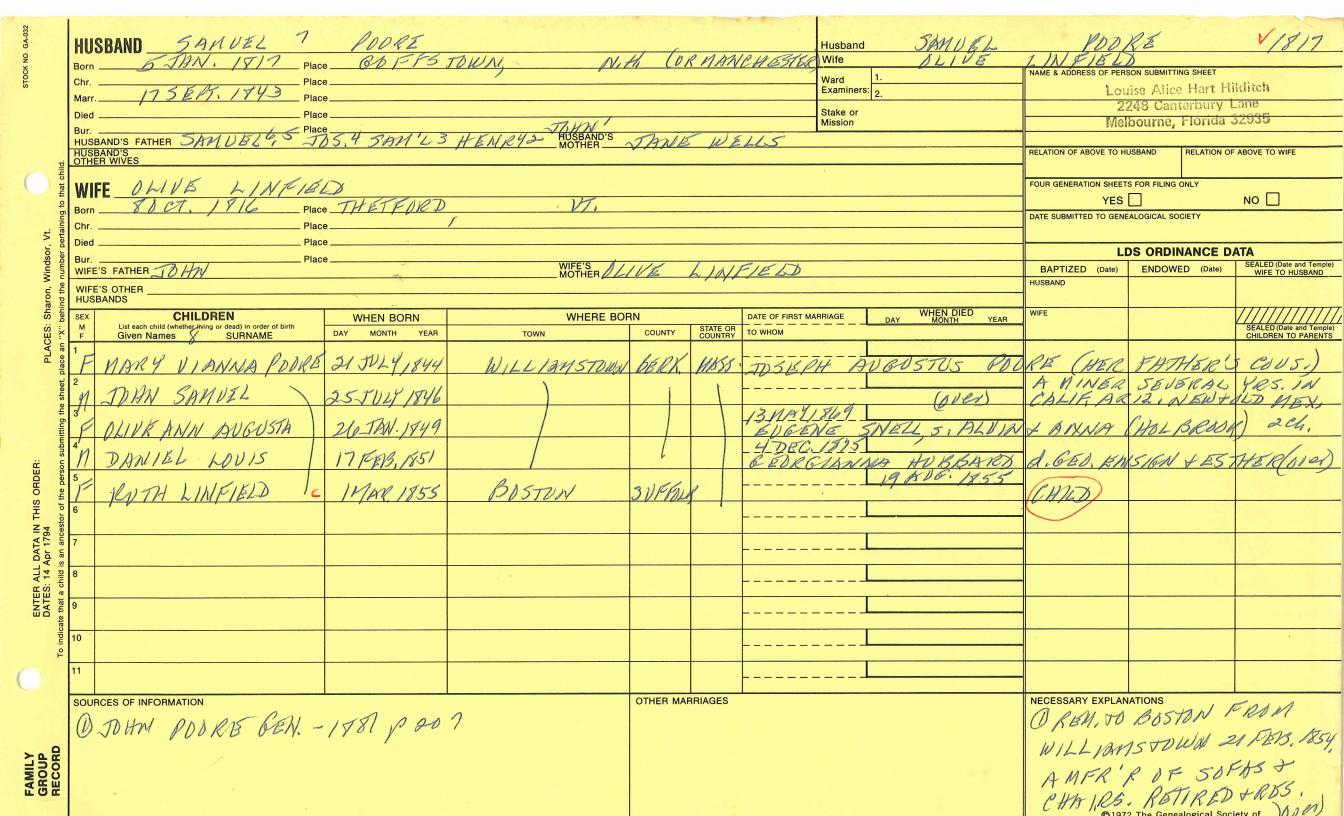 STOCK NO. GA-032
HUSBAND SAMUEL 7 POORE
Born 5 JAN. 1817 Place GOFFSTOWN, N.H. (OR MANCHESTER)
Chr. Place
Marr. 17 SEPT. 1843 Place
Died Place
Bur. Place
HUSBAND'S FATHER SAMUEL 6, 5 JOS. 4 SAM'L 3 HENRY 2 JOHN 1 HUSBAND'S MOTHER JANE WELLS
HUSBAND'S OTHER WIVES
WIFE OLIVE LINFIELD
Born 8 OCT. 1816 Place THETFORD, VT.
Chr. Place
Died Place
Bur. Place
WIFE'S FATHER JOHN WIFE'S MOTHER OLIVE LINFIELD
WIFE'S OTHER HUSBANDS
Husband SAMUEL POORE ✓1817
Wife OLIVE LINFIELD
Ward Examiners: 1.
2.
Stake or Mission
NAME & ADDRESS OF PERSON SUBMITTING SHEET
Louise Alice Hart Hilditch
2248 Canterbury Lane
Melbourne, Florida 32935
RELATION OF ABOVE TO HUSBAND RELATION OF ABOVE TO WIFE
FOUR GENERATION SHEETS FOR FILING ONLY
YES NO
DATE SUBMITTED TO GENEALOGICAL SOCIETY
LDS ORDINANCE DATA
BAPTIZED (Date) ENDOWED (Date) SEALED (Date and Temple) WIFE TO HUSBAND
HUSBAND
WIFE
SEALED (Date and Temple) CHILDREN TO PARENTS
SEX M F
CHILDREN
List each child (whether living or dead) in order of birth
Given Names SURNAME
WHEN BORN
DAY MONTH YEAR
WHERE BORN
TOWN COUNTY STATE OR COUNTRY
DATE OF FIRST MARRIAGE
TO WHOM
WHEN DIED
DAY MONTH YEAR
1 F MARY VIANNA POORE 21 JULY, 1844 WILLIAMSTOWN BERK MASS. JOSEPH AUGUSTUS POORE (HER FATHER'S COUS.)
2 M JOHN SAMUEL 25 JULY 1846 (over) A MINER SEVERAL YRS. IN
CALIF, ARIZ, NEW & OLD MEX.
13 MAY 1869
3 F OLIVE ANN AUGUSTA 26 JAN. 1849 EUGENE SNELL, S. ALVIN & ANNA (HOLBROOK) 2 ch.
4 DEC. 1875
4 M DANIEL LOUIS 17 FEB, 1851 GEORGIANNA HUBBARD d. GEO. ENSIGN & ESTHER (over)
19 AUG. 1855
5 F RUTH LINFIELD C 1 MAR 1855 BOSTON SUFFOLK CHILD
6
7
8
9
10
11
SOURCES OF INFORMATION
① JOHN POORE GEN. - 1881 p 207
OTHER MARRIAGES
NECESSARY EXPLANATIONS
① REM. TO BOSTON FROM
WILLIAMSTOWN 21 FEB. 1854,
A MFR'R OF SOFAS &
CHAIRS. RETIRED & RES.
(over)
©1972 The Genealogical Society of
PLACES: Sharon, Windsor, Vt.
ENTER ALL DATA IN THIS ORDER:
DATES: 14 Apr 1794
To indicate that a child is an ancestor of the person submitting the sheet, place an "X" behind the number pertaining to that child.
FAMILY GROUP RECORD